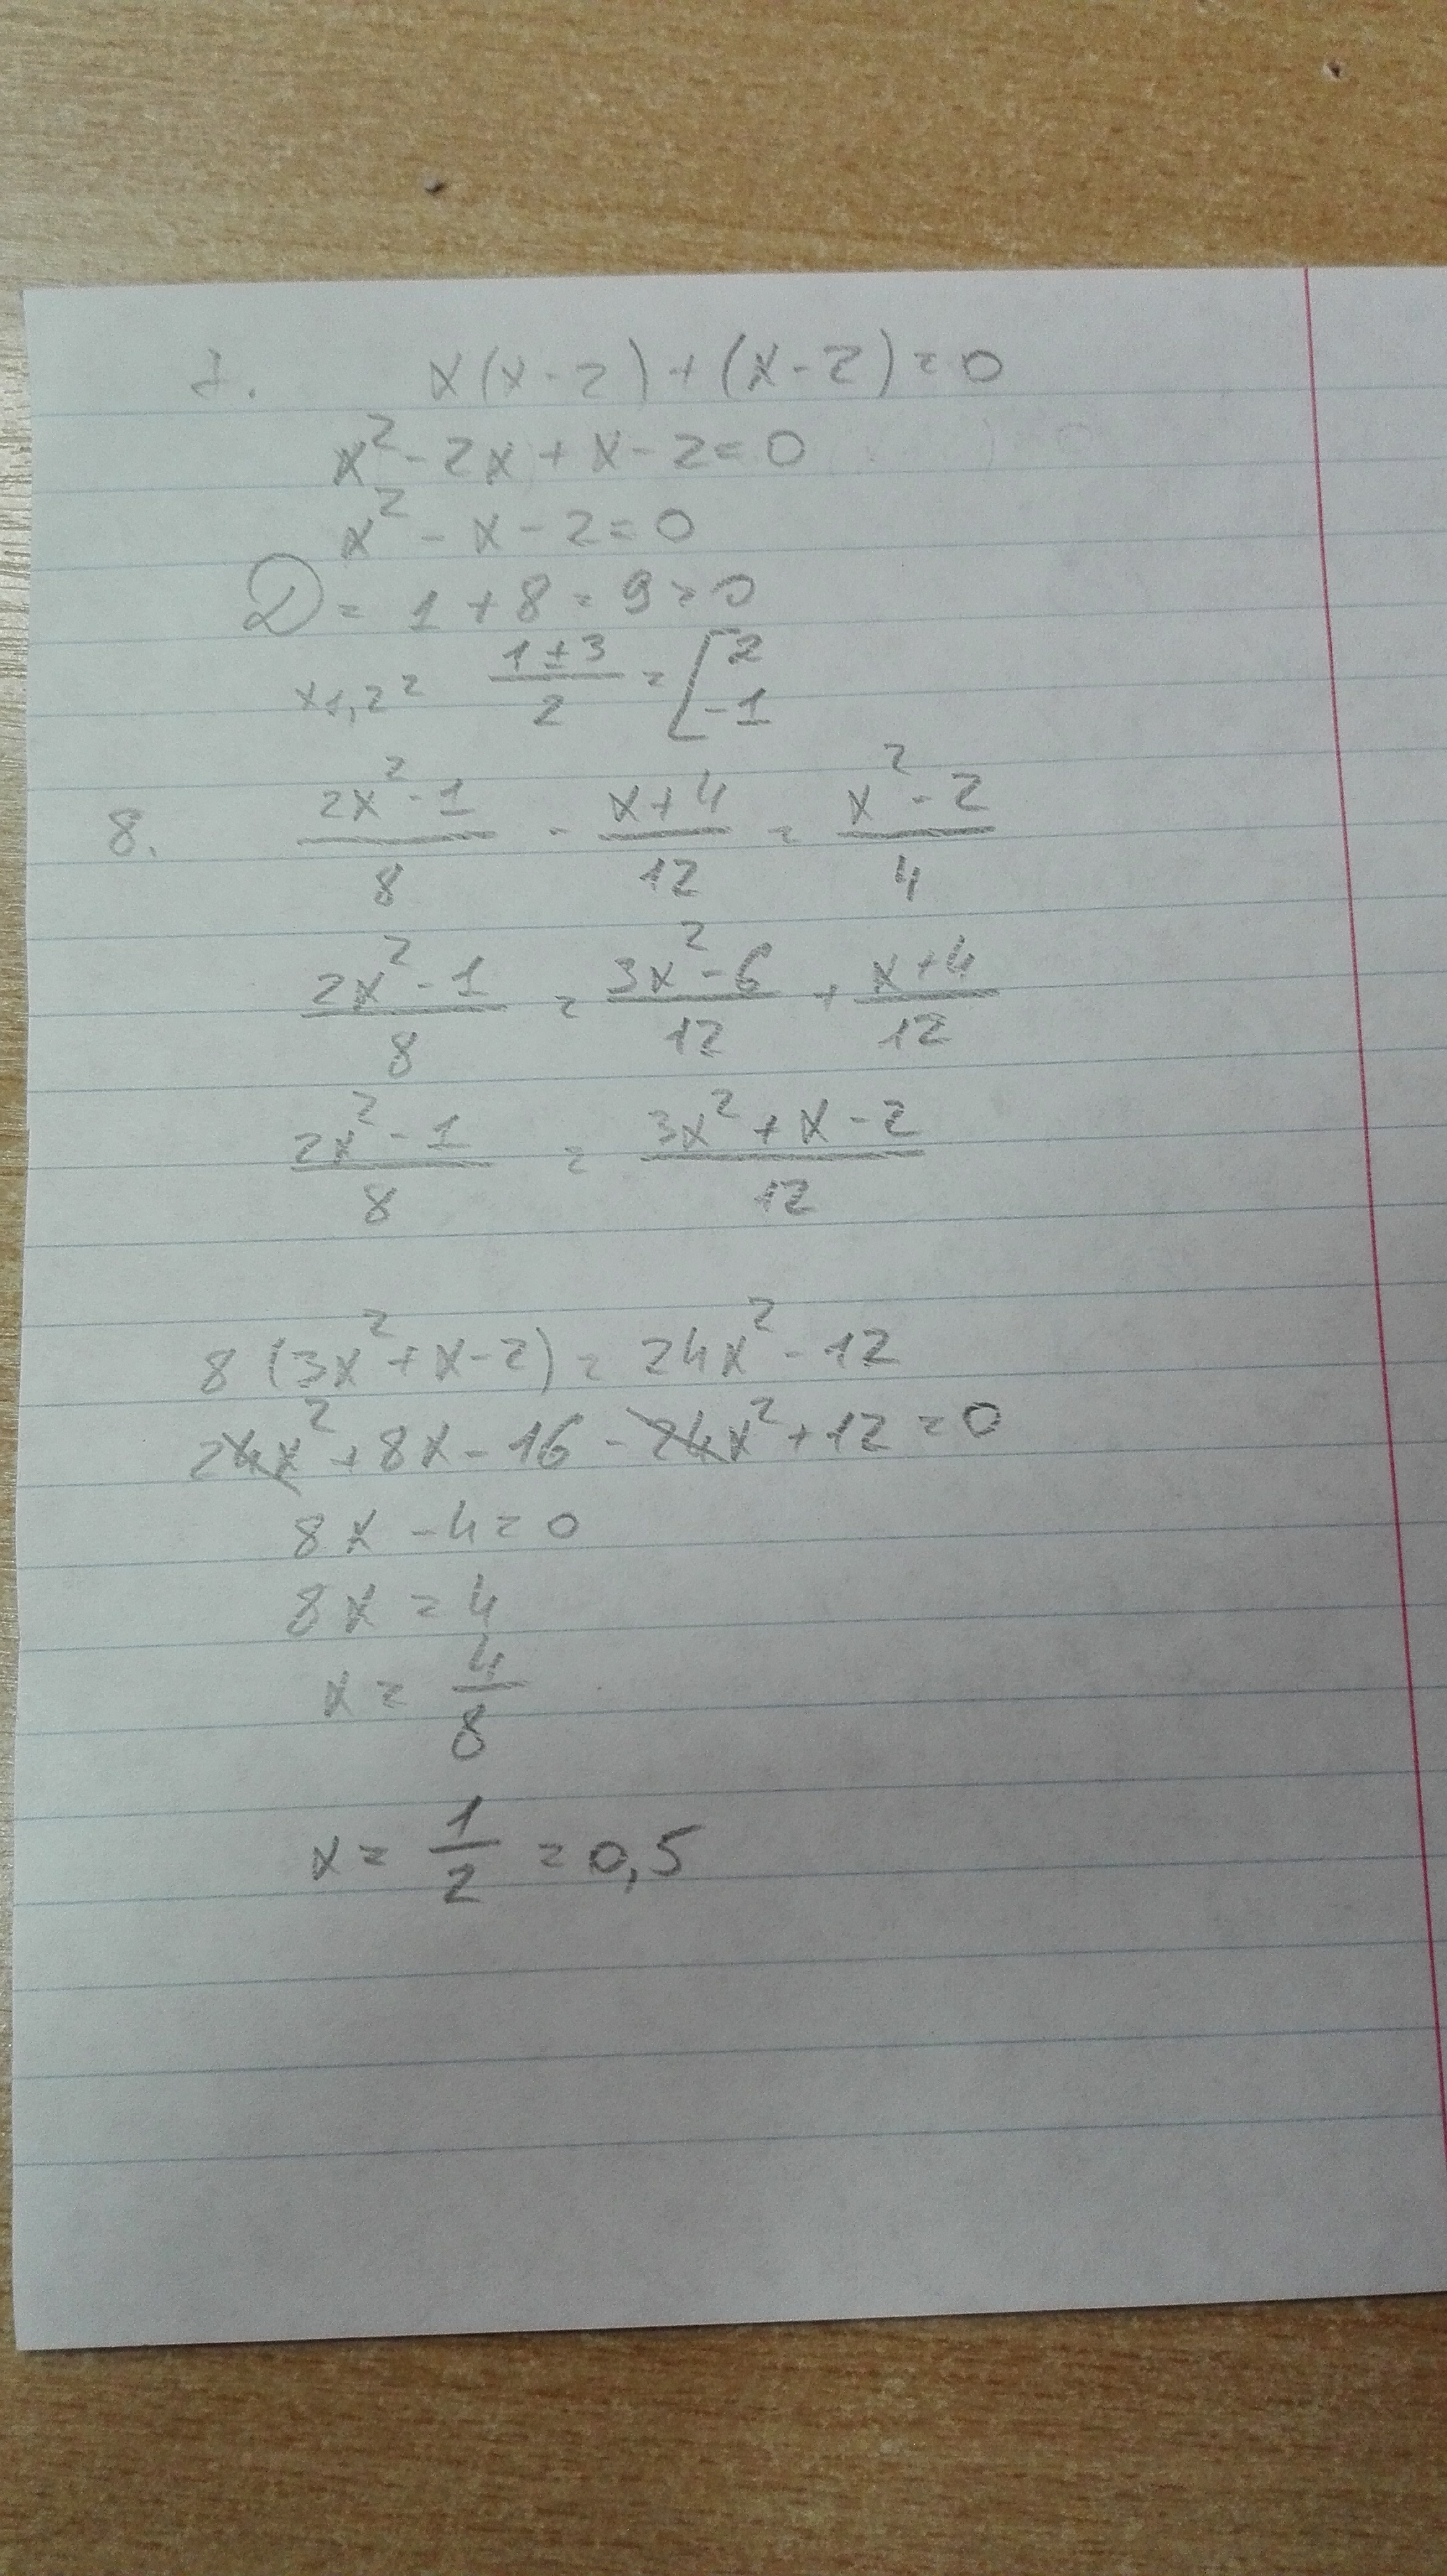 7. x(x-2)+(x-2)=0
x²-2x+x-2=0
x²-x-2=0
D=1+8=9>0
x1,2= (1±3)/2 = [2 -1
8. (2x²-1)/8 - (x+4)/12 = (x²-2)/4
(2x²-1)/8 = (3x²-6)/12 + (x+4)/12
(2x²-1)/8 = (3x²+x-2)/12
8(3x²+x-2)=24x²-12
24x²+8x-16-24x²+12=0
8x-4=0
8x=4
x=4/8
x=1/2=0,5